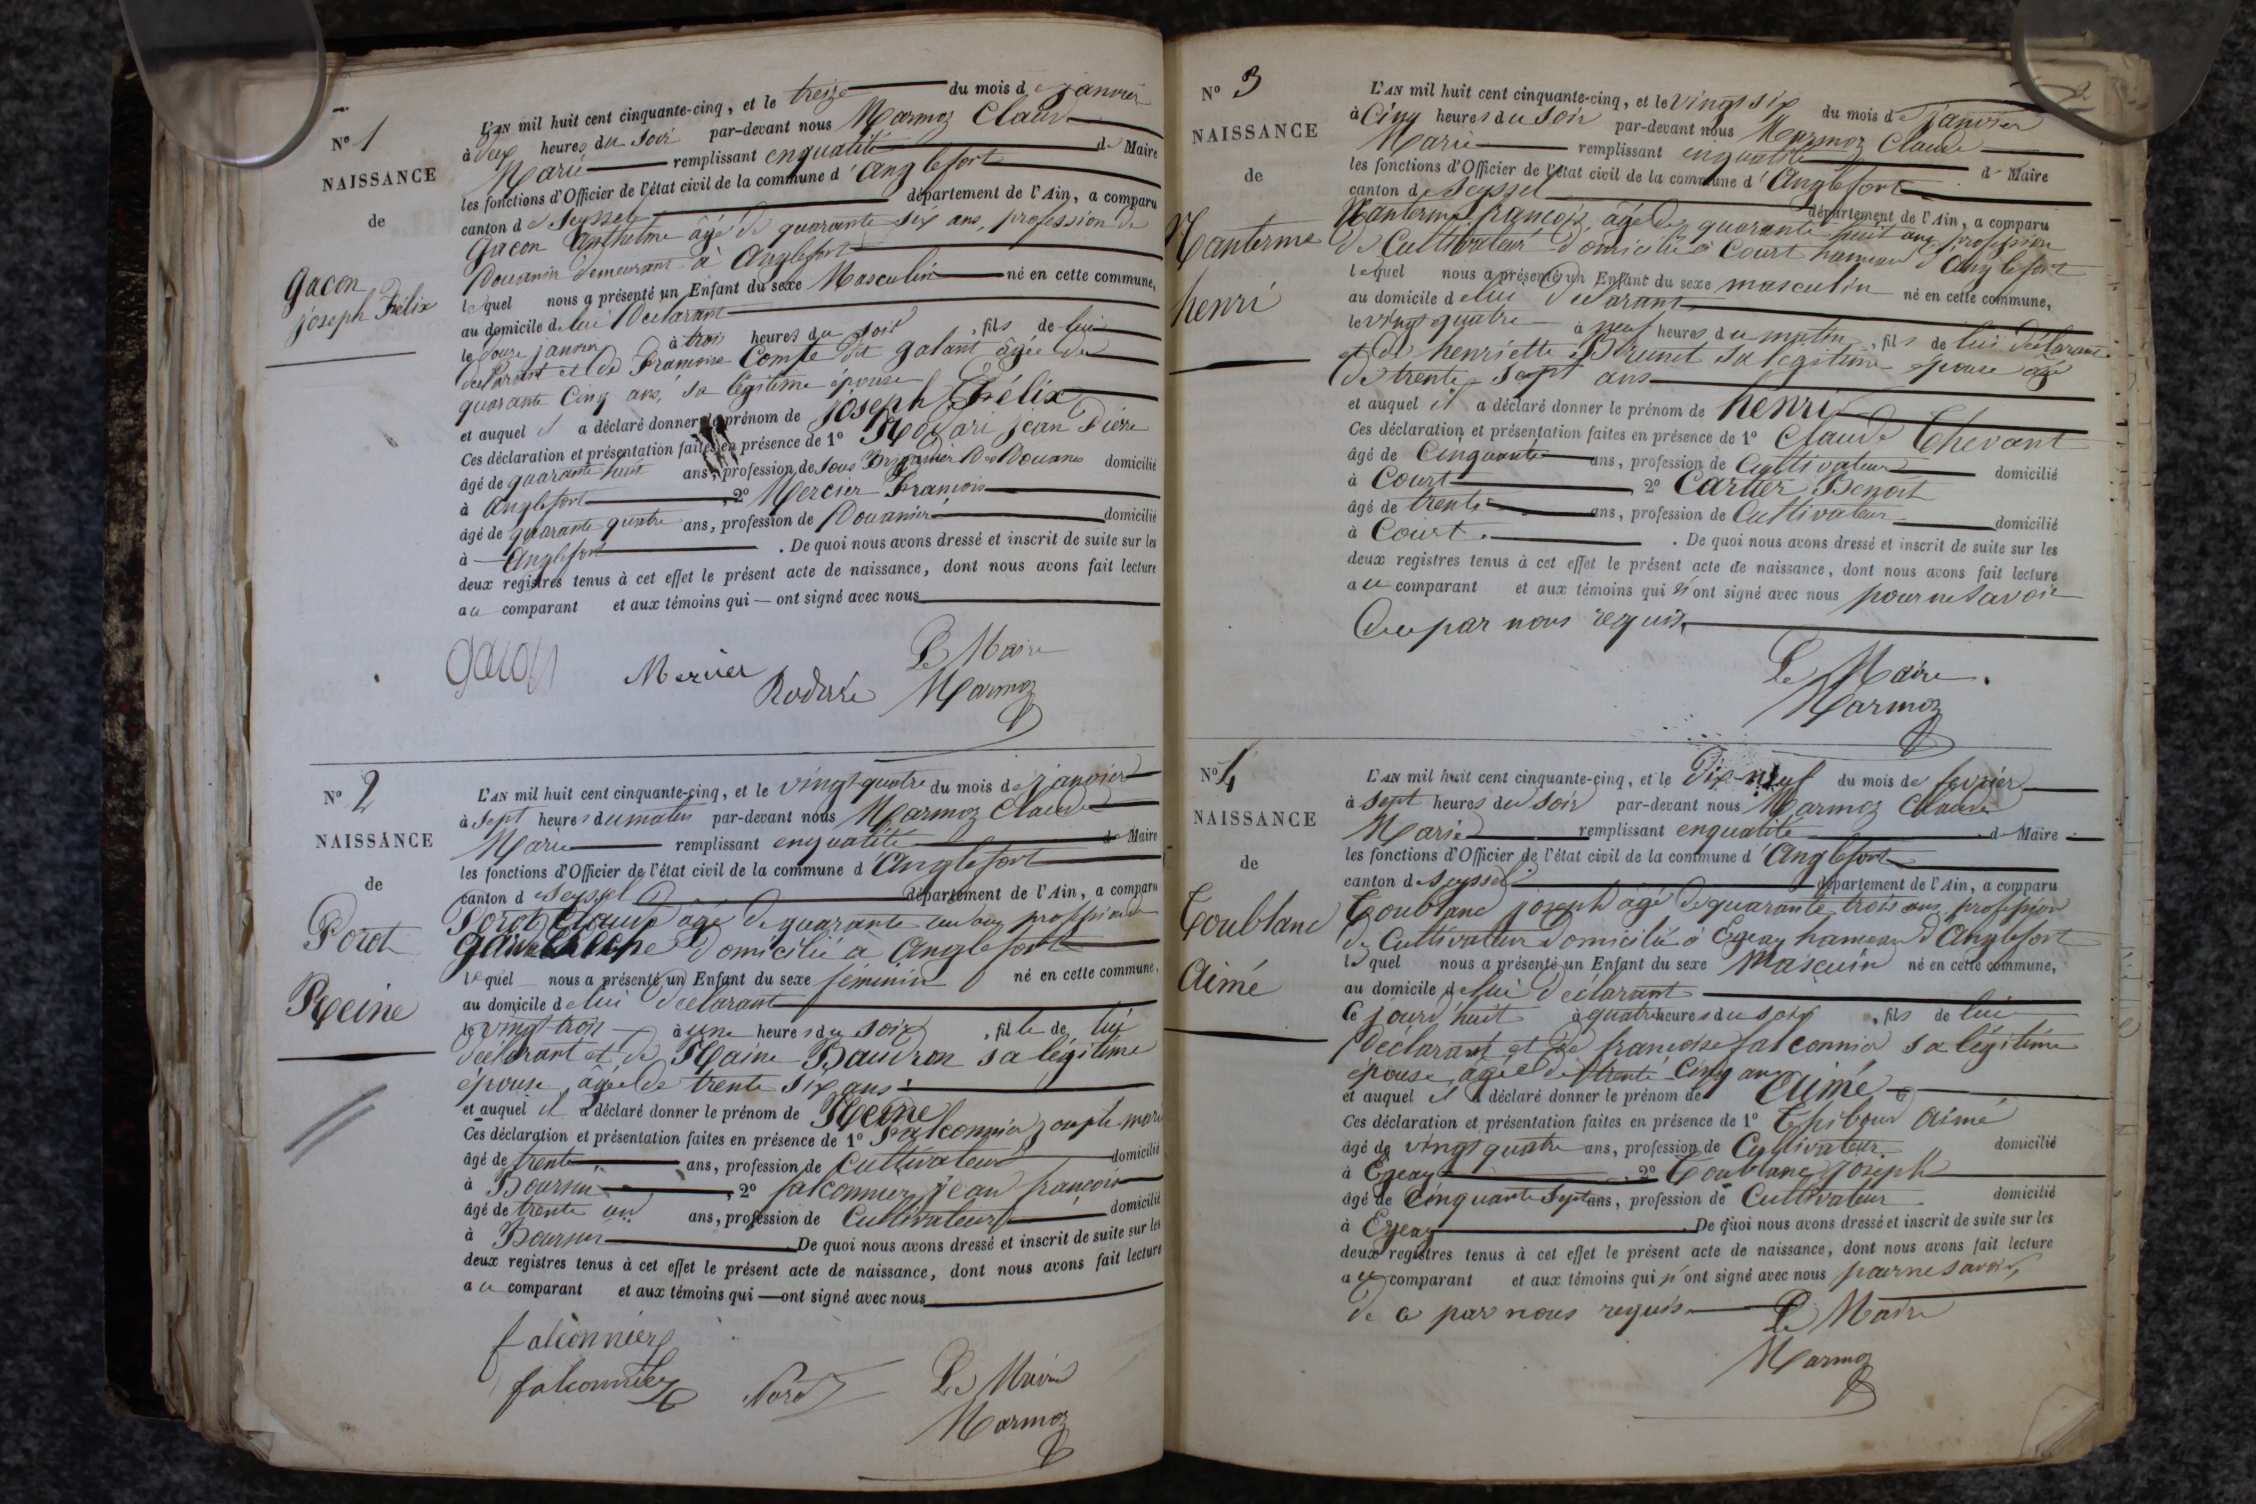 N° 1
NAISSANCE
de
Gacon
joseph Félix
L'AN mil huit cent cinquante-cinq, et le treize du mois de janvier
à deux heures du soir par-devant nous Marmoz Claude
Marie remplissant en qualité de Maire
les fonctions d'Officier de l'état civil de la commune d'Anglefort
canton de Seyssel département de l'Ain, a comparu
Gacon Anthelme âgé de quarante six ans, profession de
Douanier demeurant à Anglefort
lequel nous a présenté un Enfant du sexe Masculin né en cette commune,
au domicile de lui Déclarant
le douze janvier à trois heures du soir, fils de lui
déclarant et de Françoise Comte dit galant âgée de
quarante cinq ans, sa légitime épouse
et auquel il a déclaré donner le prénom de joseph Félix
Ces déclaration et présentation faites en présence de 1° jean Pierre
âgé de quarante huit ans, profession de Sous Brigadier Des Douanes domicilié
à Anglefort, 2° Mercier François
âgé de quarante quatre ans, profession de Douanier domicilié
à Anglefort. De quoi nous avons dressé et inscrit de suite sur les
deux registres tenus à cet effet le présent acte de naissance, dont nous avons fait lecture
au comparant et aux témoins qui ont signé avec nous
Gacon Mercier Le Maire
Marmoz
N° 2
NAISSANCE
de
Porot
Reine
L'AN mil huit cent cinquante-cinq, et le vingt quatre du mois de janvier
à sept heures du matin par-devant nous Marmoz Claude
Marie remplissant en qualité de Maire
les fonctions d'Officier de l'état civil de la commune d'Anglefort
canton de Seyssel département de l'Ain, a comparu
Porot Claude âgé de quarante un ans profession de
domicilié à Anglefort
lequel nous a présenté un Enfant du sexe féminin né en cette commune,
au domicile de lui déclarant
le vingt trois à une heures du soir, fille de lui
déclarant et de Baudron sa légitime
épouse, âgée de trente six ans
et auquel il a déclaré donner le prénom de Reine
Ces déclaration et présentation faites en présence de 1° Falconnier joseph marie
âgé de trente ans, profession de Cultivateur domicilié
à 2° falconnier jean françois
âgé de trente un ans, profession de Cultivateur domicilié
à De quoi nous avons dressé et inscrit de suite sur les
deux registres tenus à cet effet le présent acte de naissance, dont nous avons fait lecture
au comparant et aux témoins qui ont signé avec nous
falconnier
falconnier Le Maire
Marmoz
N° 3
NAISSANCE
de
Nanterme
henri
L'AN mil huit cent cinquante-cinq, et le vingt six du mois de janvier
à Cinq heures du soir par-devant nous Marmoz Claude
Marie remplissant en qualité de Maire
les fonctions d'Officier de l'état civil de la commune d'Anglefort
canton de Seyssel département de l'Ain, a comparu
Nanterme françois âgé de quarante huit ans profession
de Cultivateur domicilié à Court hameau d'Anglefort
lequel nous a présenté un Enfant du sexe masculin né en cette commune,
au domicile de lui déclarant
le vingt quatre à neuf heures du matin, fils de lui déclarant
et de henriette Brunet sa légitime épouse âgé
de trente sept ans
et auquel il a déclaré donner le prénom de henri
Ces déclaration et présentation faites en présence de 1° Claude Chevant
âgé de Cinquante ans, profession de Cultivateur domicilié
à Court 2° Cartier Benoit
âgé de trente ans, profession de Cultivateur domicilié
à Court. De quoi nous avons dressé et inscrit de suite sur les
deux registres tenus à cet effet le présent acte de naissance, dont nous avons fait lecture
au comparant et aux témoins qui n'ont signé avec nous pour ne savoir
de ce par nous requis
Le Maire
Marmoz
N° 4
NAISSANCE
de
Toublanc
Aimé
L'AN mil huit cent cinquante-cinq, et le Dix-neuf du mois de fevrier
à sept heures du soir par-devant nous Marmoz Claude
Marie remplissant en qualité de Maire
les fonctions d'Officier de l'état civil de la commune d'Anglefort
canton de Seyssel département de l'Ain, a comparu
Toublanc joseph âgé de quarante trois ans, profession
de Cultivateur domicilié à hameau d'Anglefort
lequel nous a présenté un Enfant du sexe Masculin né en cette commune,
au domicile de lui déclarant
Ce jourd'huit à quatre heures du soir, fils de lui
déclarant et de francoise falconnier sa légitime
épouse, agée de trente Cinq ans
et auquel il a déclaré donner le prénom de Aimé
Ces déclaration et présentation faites en présence de 1° Thiboud Aimé
âgé de vingt quatre ans, profession de Cultivateur domicilié
à 2° Toublanc joseph
âgé de Cinquante sept ans, profession de Cultivateur domicilié
à De quoi nous avons dressé et inscrit de suite sur les
deux registres tenus à cet effet le présent acte de naissance, dont nous avons fait lecture
au comparant et aux témoins qui n'ont signé avec nous pour ne savoir
de ce par nous requis Le Maire
Marmoz